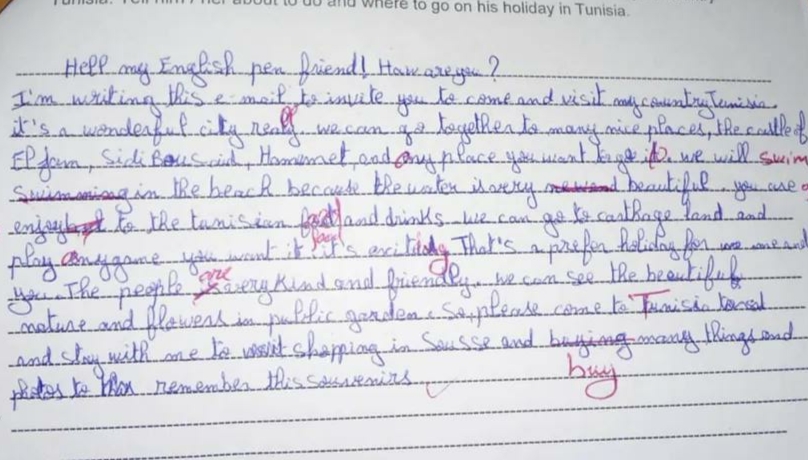 Tunisia. Tell him / her about to do and where to go on his holiday in Tunisia.
Hell my English pen friend! How are you?
I'm writing this e-mail to invite you to come and visit my country Tunisia.
it's a wonderful city really. we can go together to many nice places, the castle of
El Jam, Sidi Bou Said, Hammamet, and any place you want to go to. we will swim
swimming in the beach because the water is very beautiful. you are
enjoy to the tunisian food and drinks. we can go to carthage land and
play any game you want it, it's exciting That's a prefer holiday for me and
you. The people are very kind and friendly. we can see the beautiful
nature and flowers in public garden. So, please come to Tunisia
and stay with me to visit shopping in Sousse and buying many things and
buy
photos to remember this souvenirs.